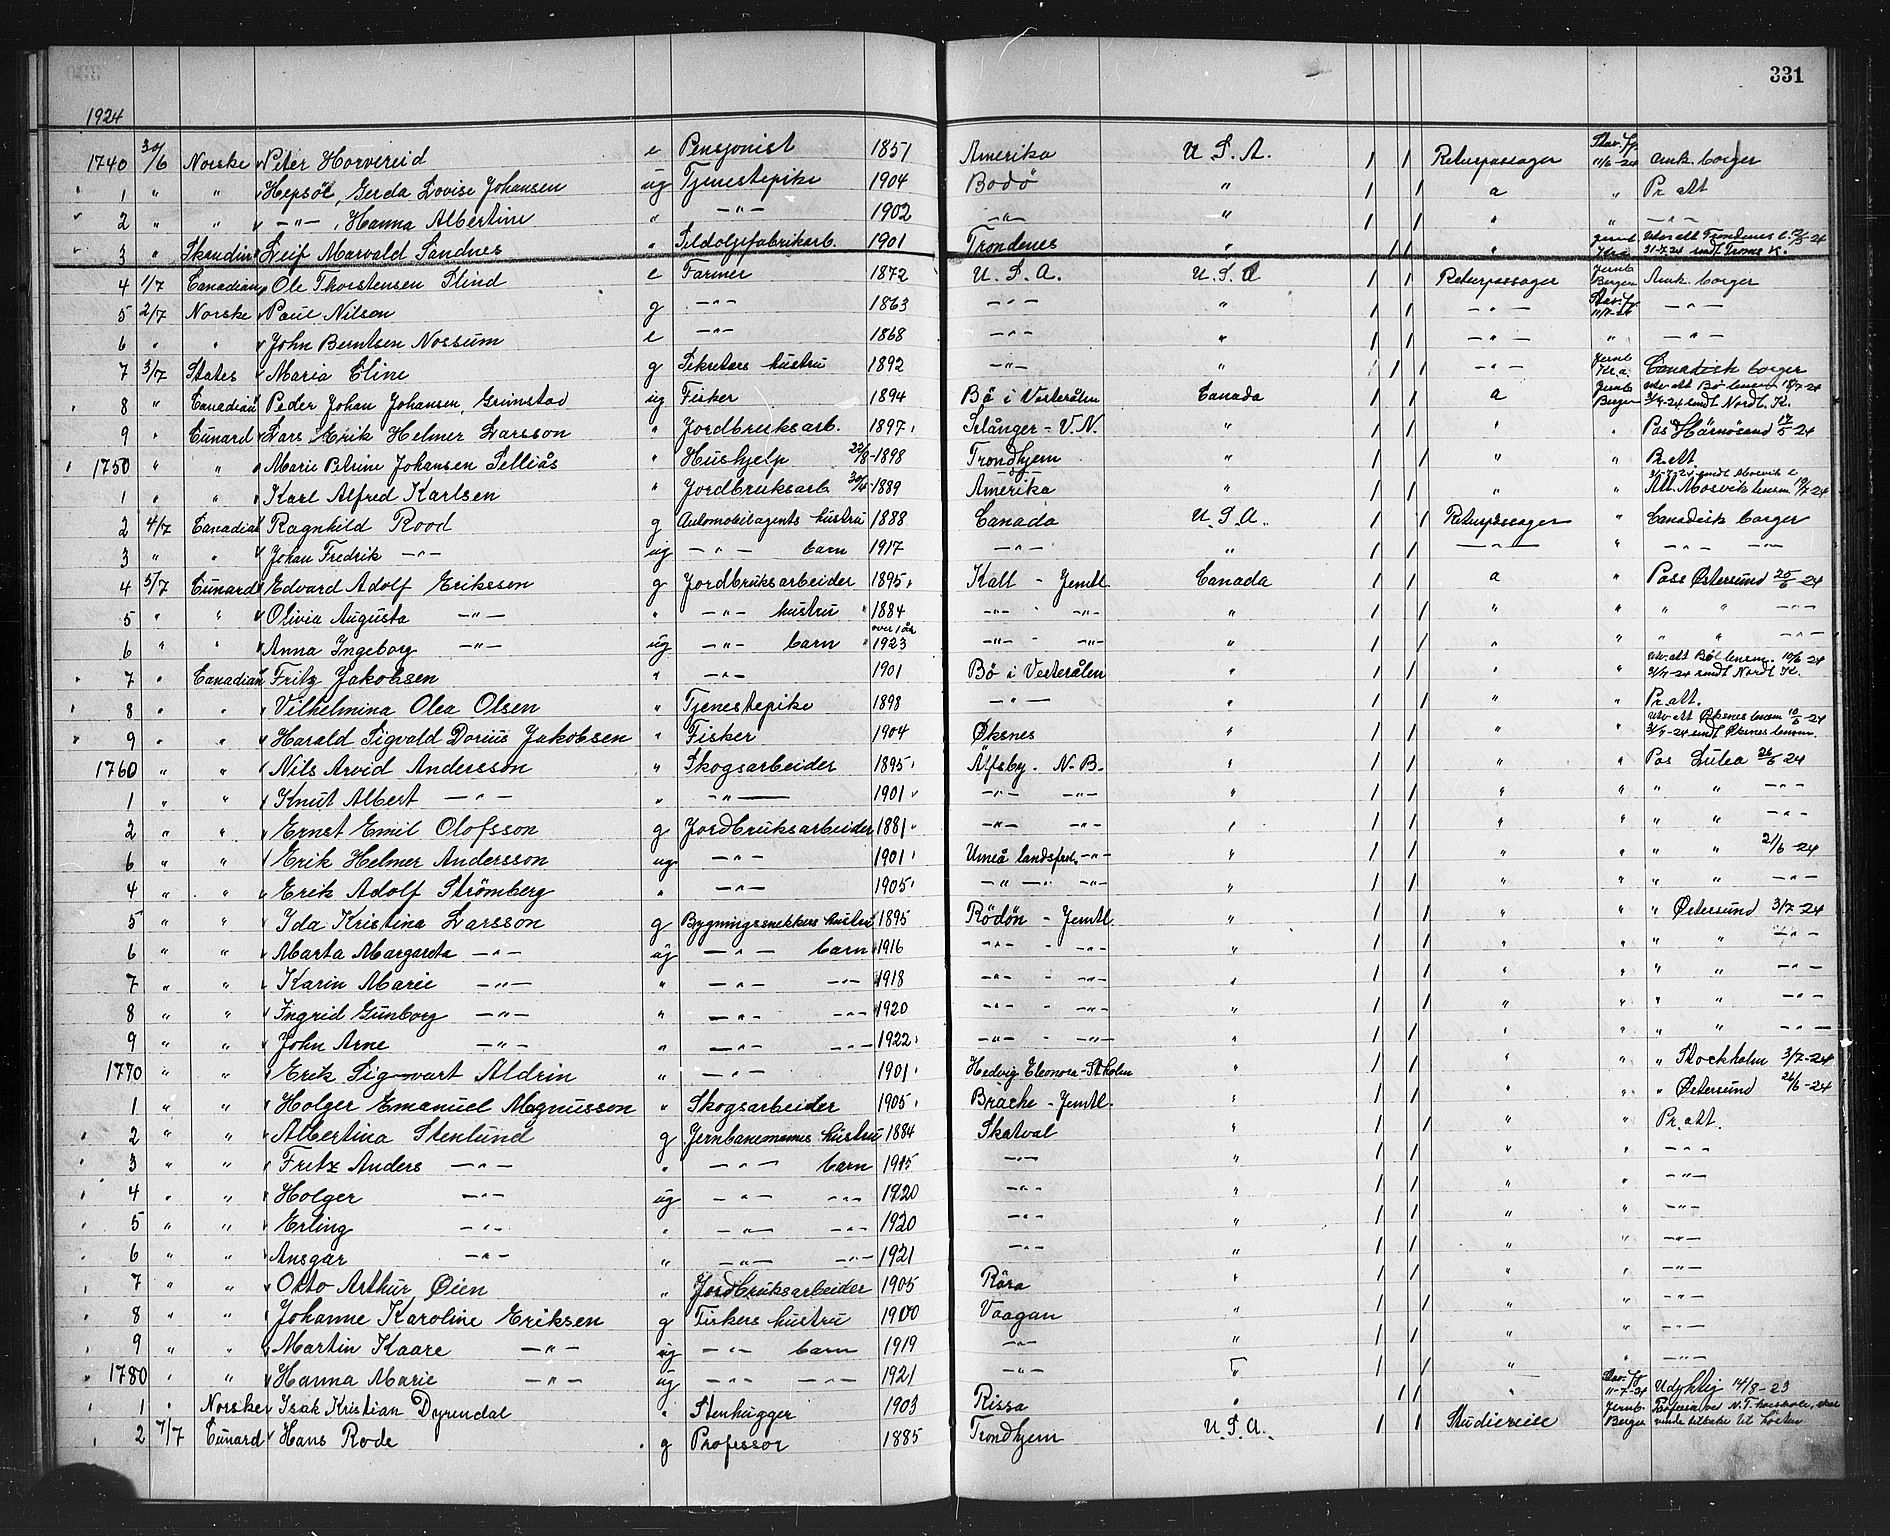 331
1924
1740 30/6 Norske Peter Horvereid e Pensjonist 1851 Amerika U. S. A. / / Returpassager Stav. fg 11/6-24 Amk. borger
1 " " Hepsöe, Gerda Lovise Johansen ug Tjenestepike 1904 Bodö " / / a " Pr att
2 " " —"—, Hanna Albertine " —"— 1902 —"— " / / " " —"—
3 " Skandin Leif Marvald Sandnes " Sildoljefabrikarb. 1901 Trondenes " / / " Jernb Kr.a Utv. att Trondenes l. -24 31-7-24 sendt Troms K.
4 1/7 Canadian Ole Thorstensen Slind e Farmer 1872 U. S. A. U. S. A / / Returpassager Jernb Bergen Amk. borger
5 2/7 Norske Paul Nilson g —"— 1863 —"— " / / —"— Stav. fg 11/7-24 —"—
6 " " John Berntsen Nossum e —"— 1868 —"— " / / —"— " —"—
7 3/7 States Maria Eline g Sekretærs hustru 1892 —"— " / / —"— Jernb Kr.a. Canadisk borger
8 " Canadian Peder Johan Johansen, Grimstad ug Fisker 1894 Bö i Vesterålen Canada / / a Jernb Bergen Utv att Bö lensm 18/7-24 3/9-24 sendt Nordl. K.
9 " Cunard Lars Erik Helmer Larsson " Jordbruksarb. 1897 Selånger - V. N. " / / " " Pas Härnösand 17/5-24
1750 " " Marie Elrine Johansen Selliås " Hushjelp 22/8-1898 Trondhjem " / / " " Pr. att
1 " " Karl Alfred Karlsen " Jordbruksarb 30/4-1889 Amerika " / / " " -24 sendt Mosvik l. Att. Mosvik lensm 19/7-24
2 4/7 Canadian Ragnhild Rood g Automobilagents hustru 1888 Canada U. S. A. / / Returpassager " Canadisk borger
3 " " Johan Fredrik —"— ug —"— barn 1917 —"— " / / —"— " —"— —"—
4 5/7 Cunard Edvard Adolf Eriksson g Jordbruksarbeider 1895 Kall - Jemtl. Canada / / a " Pass Östersund 25/6-24
5 " " Olivia Augusta —"— " —"— hustru 1884 —"— - —"— " / / " " " " —"—
6 " " Anna Ingeborg —"— ug —"— barn over 1 år 1923 —"— - —"— " / / " " " " —"—
7 " Canadian Fritz Jakobsen " —"— 1901 Bö i Vesterålen " / / " " Utv. att Bö lensm. 10/6-24 3/9-24 sendt Nordl K.
8 " " Vilhelmina Olea Olsen " Tjenestepike 1898 —"— " / / " " Pr. att.
9 " " Harald Sigvald Dorius Jakobsen " Fisker 1904 Øksnes " / / " " Utv att Øksnes lensm 10/6-24 3/9-24 sendt Øksnes lensm.
1760 " " Nils Arvid Andersson " Skogsarbeider 1895 Älfsby. N. B. " / / " " Pas Lulea 26/6 24
1 " " Knut Albert —"— " —"— 1901 —"— —"— " / / " " " " —"—
2 " " Ernst Emil Olofsson g Jordbruksarbeider 1881 —"— —"— " / / " " " " —"—
6 " " Erik Helmer Andersson ug —"— 1901 Umeå landsförs. —"— " / / " " " " 21/6-24
4 " " Erik Adolf Strömberg " —"— 1905 —"— —"— " / / " " " " —"—
5 " " Ida Kristina Larsson g Bygningssnekkers hustru 1895 Rödön - Jemtl. " / / " " " Östersund 3/7-24
6 " " Marta Margareta —"— ug —"— barn 1916 —"— - —"— " / / " " " " —"—
7 " " Karin Marie —"— " —"— —"— 1918 —"— - —"— " / / " " " " —"—
8 " " Ingrid Gunborg —"— " —"— —"— 1920 —"— - —"— " / / " " " " —"—
9 " " John Arne —"— " —"— —"— 1922 —"— - —"— " / / " " " " —"—
1770 " " Erik Sigvart Aldrin " —"— 1901 Hedvig Eleonora - St.holm " / / " " " Stockholm 3/7-24
1 " " Holger Emanuel Magnusson " Skogsarbeider 1905 Bracke - Jemtl. " / / " " " Östersund 26/6-24
2 " " Albertina Stenlund g Jernbanemannes hustru 1884 Skatval " / / " " Pr. att.
3 " " Fritz Anders —"— " —"— barn 1915 —"— " / / " " —"—
4 " " Holger —"— ug —"— —"— 1920 —"— " / / " " —"—
5 " " Erling —"— " —"— —"— 1920 —"— " / / " " —"—
6 " " Ansgar —"— " —"— —"— 1921 —"— " / / " " —"—
7 " " Otto Arthur Øien " Jordbruksarbeider 1905 Röra " / / " " —"—
8 " " Johanne Karoline Eriksen g Fiskers hustru 1900 Vaagan " / / " " —"—
9 " " Martin Kaare —"— ug —"— barn 1919 —"— " / / " " —"—
1780 " " Hanna Marie —"— ug —"— —"— 1921 —"— " / / " " —"—
1 " Norske Isak Kristian Dyrendal " Stenhugger 1903 Rissa " / / " Stav. fg 11-7-24 Udyktig 14/3-23
2 7/7 Cunard Hans Rode g Professor 1885 Trondhjem U. S. A. / / Studiereise Jernb Bergen Professor ve N. T. høiskole, skal vende tilbake til høsten